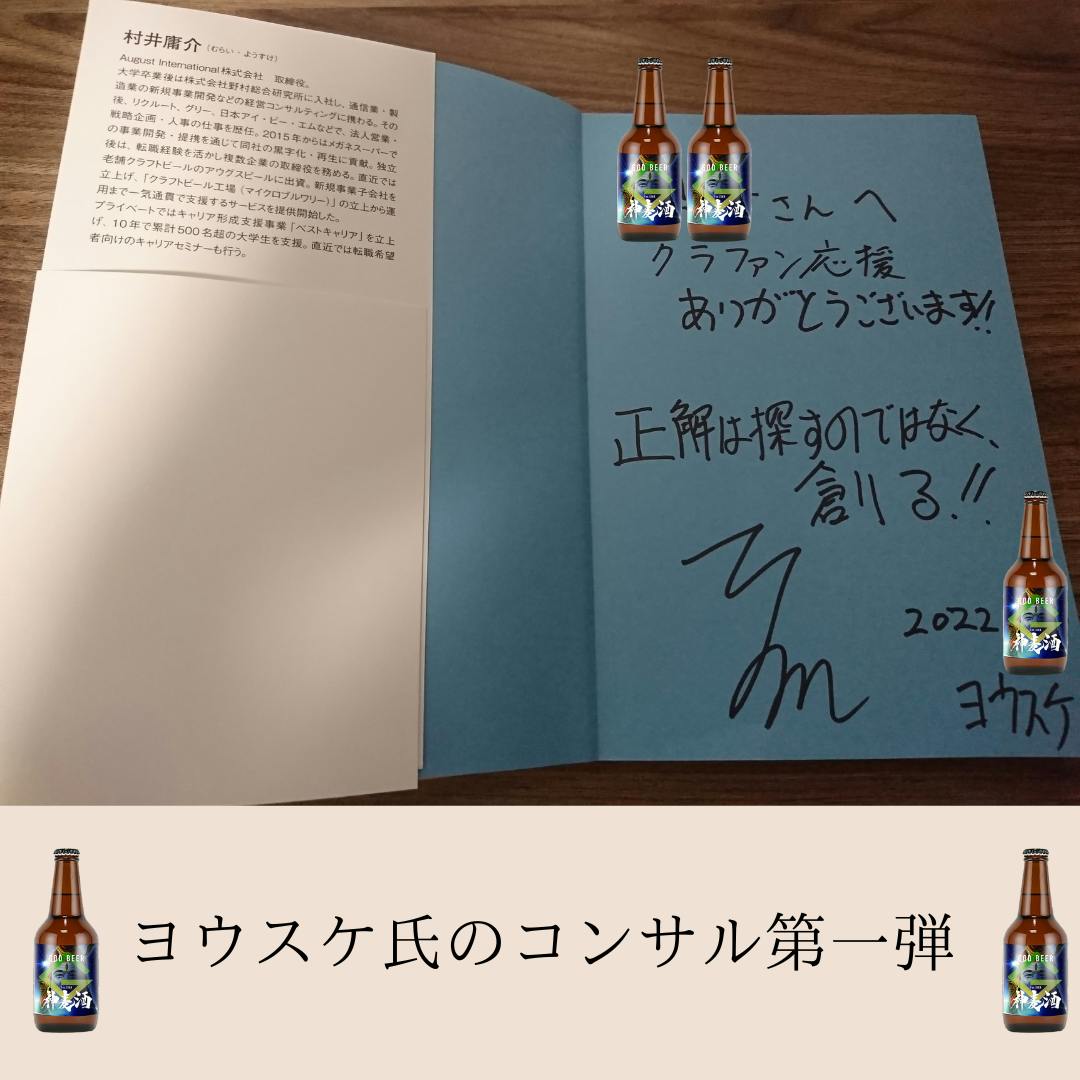 村井庸介（むらい・ようすけ）
August International株式会社　取締役。
大学卒業後は株式会社野村総合研究所に入社し、通信業・製
造業の新規事業開発などの経営コンサルティングに携わる。その
後、リクルート、グリー、日本アイ・ビー・エムなどで、法人営業・
戦略企画・人事の仕事を歴任。2015年からはメガネスーパーで
の事業開発・提携を通じて同社の黒字化・再生に貢献。独立
後は、転職経験を活かし複数企業の取締役を務める。直近では
老舗クラフトビールのアウグスビールに出資。新規事業子会社を
立上げ、「クラフトビール工場（マイクロブルワリー）」の立上から運
用まで一気通貫で支援するサービスを提供開始した。
プライベートではキャリア形成支援事業「ベストキャリア」を立上
げ、10年で累計500名超の大学生を支援。直近では転職希望
者向けのキャリアセミナーも行う。
さんへ
クラファン応援
ありがとうございます!!
正解は探すのではなく、
創る!!
2022
ヨウスケ
GOD BEER
神麦酒
GOD BEER
神麦酒
GOD BEER
神麦酒
ヨウスケ氏のコンサル第一弾
GOD BEER
神麦酒
GOD BEER
神麦酒